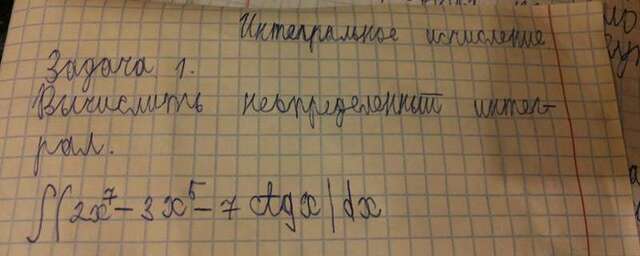 Интегральное исчисление
Задача 1.
Вычислить неопределенный интег-
рал.
∫(2x⁷ - 3x⁵ - 7 ctg x)dx